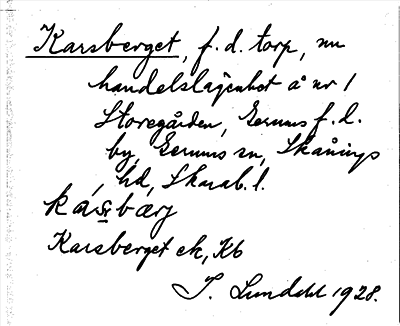 Karsberget, f.d. torp, nu
handelslägenhet å nr 1
Storegården, Gerums f.d.
by, Gerums sn, Skånings
hd, Skarab. l.
Karsberget ek, Kb
J. Lundahl 1928.